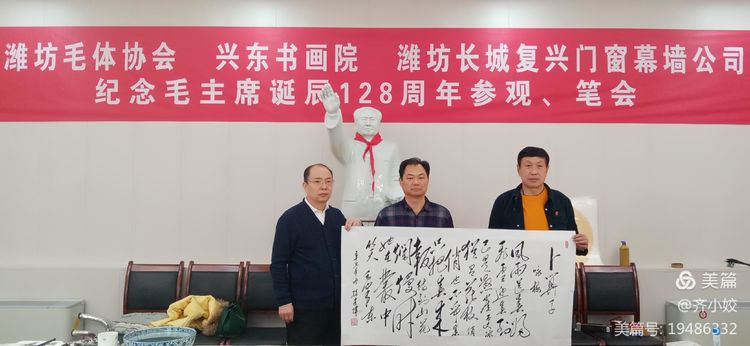 潍坊毛体协会 兴东书画院 潍坊长城复兴门窗幕墙公司
纪念毛主席诞辰128周年参观、笔会
卜算子
咏梅
风雨送春归
飞雪迎春到
已是悬崖百丈冰
犹有花枝俏
俏也不争春
只把春来
報待到山花
烂漫时
她在叢中
笑
毛泽东
美篇
@齐小姣
美篇号:19486332